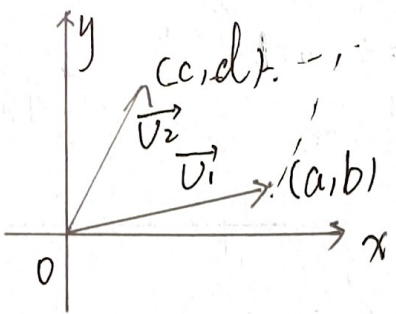 y
(c,d)
V₂
V₁
(a,b)
x
0